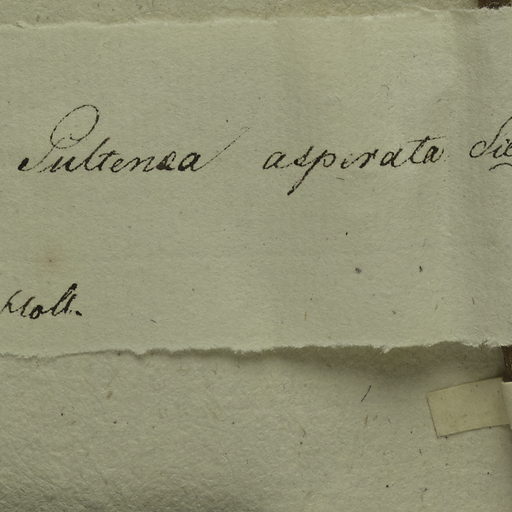 Pultenaea asperata Sie
Holl.